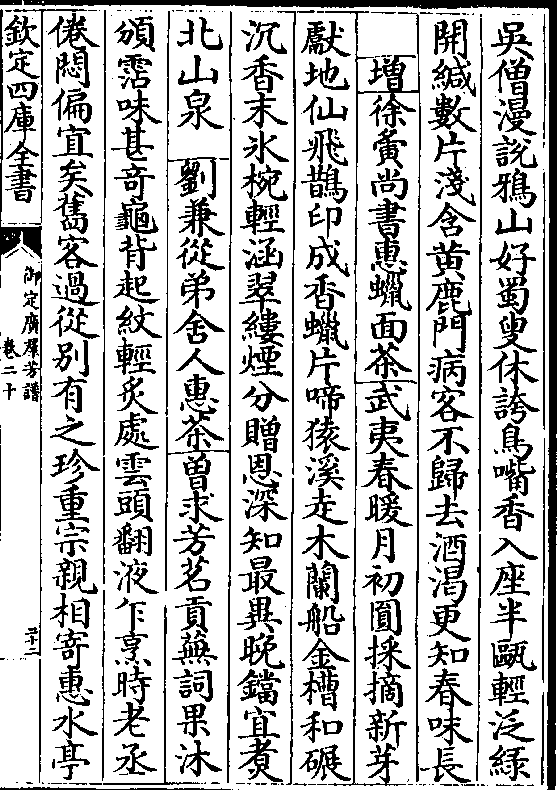 吳僧漫說鴉山好蜀叟休誇鳥嘴香入座半甌輕泛綠
開緘數片淺含黄鹿門病客不歸去酒渴更知春味長
增徐夤尚書惠蠟面茶武夷春暖月初圓採摘新芽
獻地仙飛鵲印成香蠟片啼猿溪走木蘭船金槽和碾
沉香末氷椀輕涵翠縷煙分贈恩深知最異晚鐺宜煑
北山泉劉兼從弟舍人惠茶曽求芳茗貢蕪詞果沐
頒霑味甚竒龜背起紋輕炙處雲頭翻液乍烹時老丞
倦悶偏宜矣舊客過從别有之珍重宗親相寄惠水亭
欽定四庫全書
御定廣羣芳譜
卷二十
三十二